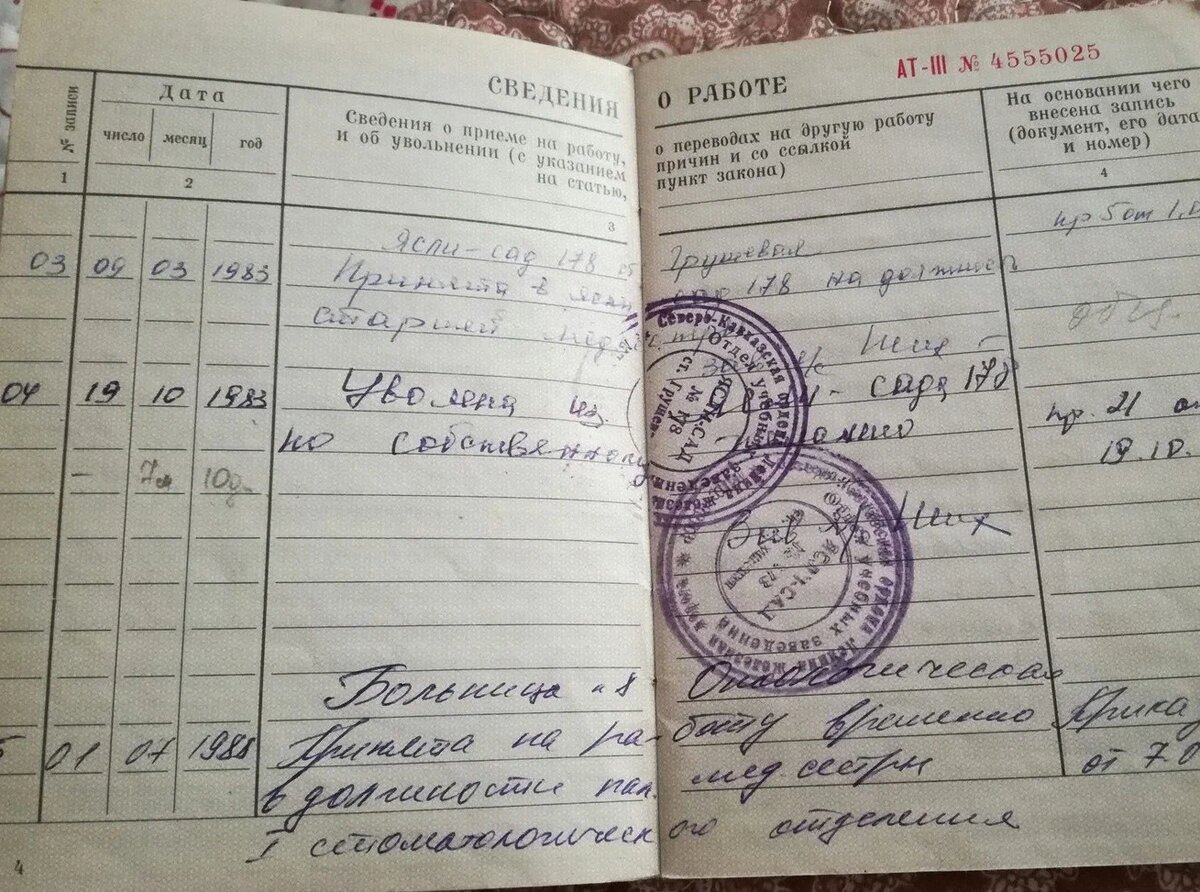 АТ-III № 4555025
СВЕДЕНИЯ О РАБОТЕ
№ записи
Дата
число месяц год
Сведения о приеме на работу, о переводах на другую работу
и об увольнении (с указанием причин и со ссылкой
на статью, пункт закона)
На основании чего
внесена запись
(документ, его дата
и номер)
1 2 3 4
Ясли-сад 178 Грушевая
03 09 03 1983 Принята в ясли сад 178 на должность
пр 5 от 1.8
старшей мед
04 19 10 1983 Уволена из сада 178
по собственному желанию
пр. 21 от
19.10.
7м 10д
Больница №8 Онкологическая
5 01 07 1988 Принята на работу временно
Приказ
в должности пал. мед.сестры
от 7.0
I стоматологического отделения
Северо-Кавказская ордена Ленина железная
Отдел учебных заведений
ЯСЛИ-САД
№ 178
ст. Грушев
ордена Ленина железная дорога
учебных заведений
ЯСЛИ-САД
4